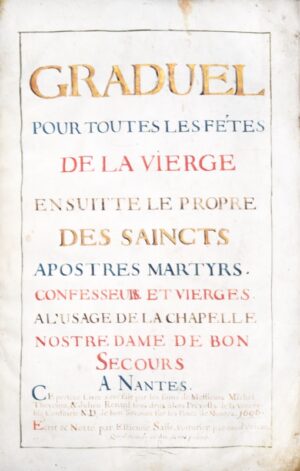 GRADUEL
POUR TOUTES LES FÉTES
DE LA VIERGE
ENSUITTE LE PROPRE
DES SAINCTS
APOSTRES MARTYRS.
CONFESSEURS ET VIERGES.
A L'USAGE DE LA CHAPELLE
NOSTRE DAME DE BON
SECOURS
A NANTES.
Ce present Livre a esté fait par les soins de Messieurs Michel
N.D. de bon Secours sur les Ponts de Nantes. 1696.
Escrit & Notté par Estienne